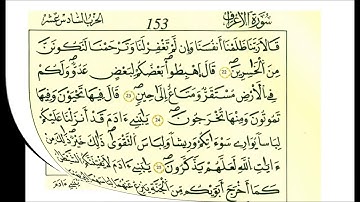 الحزب السادس عشر 153 سورة الأعراف
قَالَا رَبَّنَا ظَلَمْنَا أَنفُسَنَا وَإِن لَّمْ تَغْفِرْ لَنَا وَتَرْحَمْنَا لَنَكُونَنَّ
مِنَ الْخَاسِرِينَ 22 قَالَ اهْبِطُوا بَعْضُكُمْ لِبَعْضٍ عَدُوٌّ وَلَكُمْ
فِي الْأَرْضِ مُسْتَقَرٌّ وَمَتَاعٌ إِلَىٰ حِينٍ 23 قَالَ فِيهَا تَحْيَوْنَ وَفِيهَا
تَمُوتُونَ وَمِنْهَا تُخْرَجُونَ 24 يَٰبَنِي ءَادَمَ قَدْ أَنزَلْنَا عَلَيْكُمْ
لِبَاسًا يُوَارِي سَوْءَٰتِكُمْ وَرِيشًا وَلِبَاسَ التَّقْوَىٰ ذَٰلِكَ خَيْرٌ ذَٰلِكَ مِنْ
ءَايَٰتِ اللَّهِ لَعَلَّهُمْ يَذَّكَّرُونَ 25 يَٰبَنِي ءَادَمَ لَا يَفْتِنَنَّكُمُ الشَّيْطَٰنُ
كَمَا أَخْرَجَ أَبَوَيْكُم مِّنَ الْجَنَّةِ يَنزِعُ عَنْهُمَا